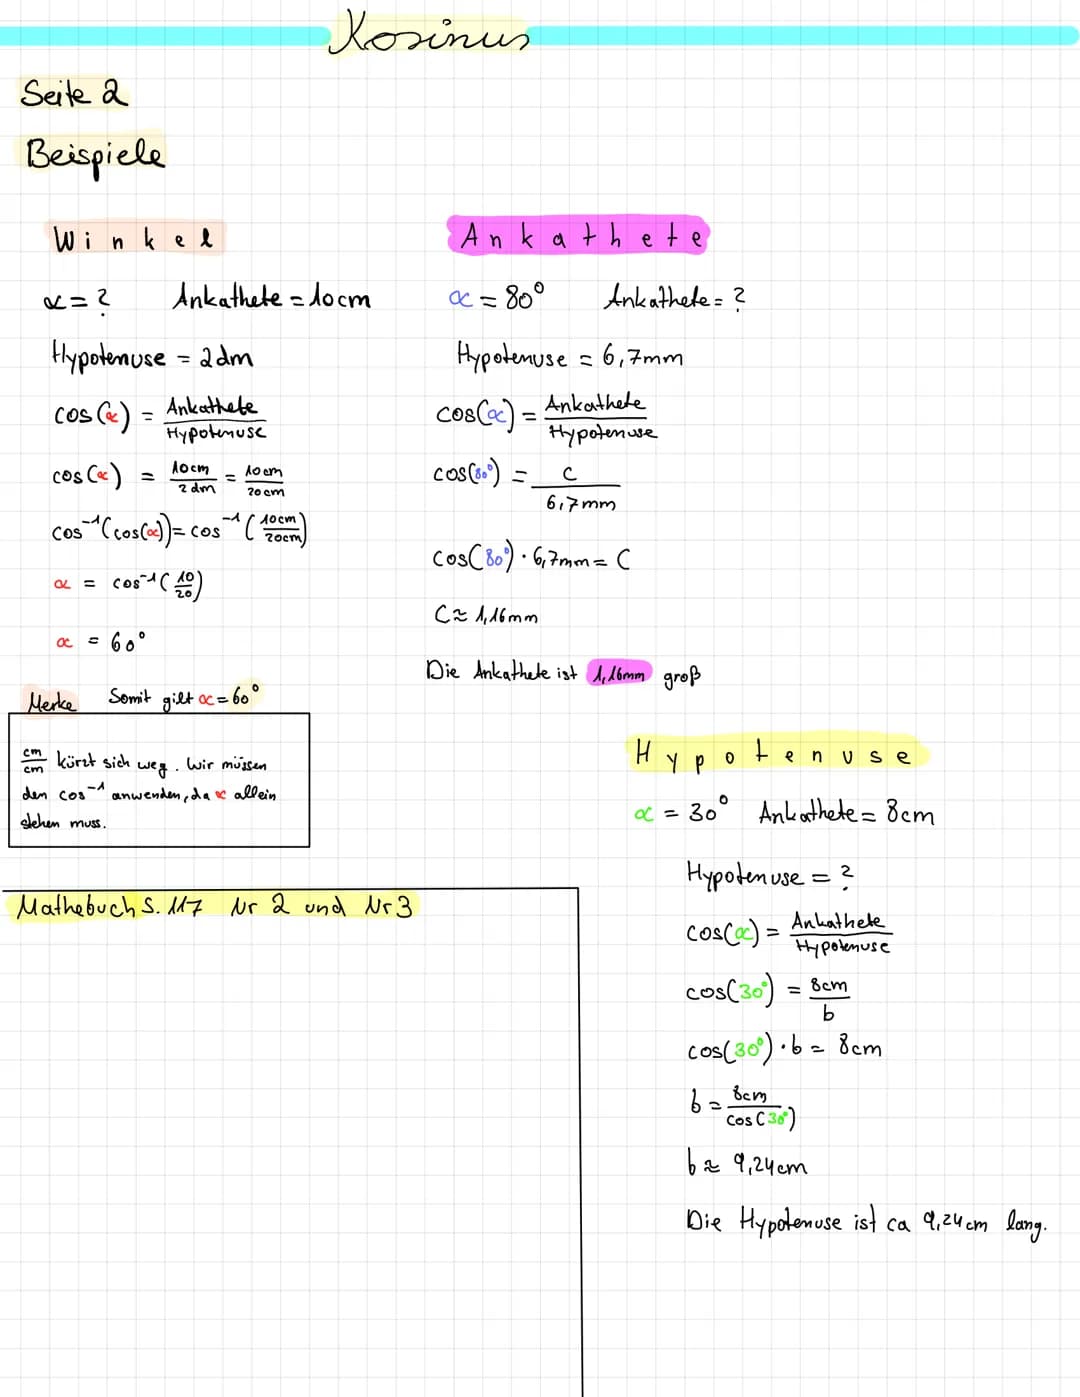 Kosinus
Seite 2
Beispiele
Winkel
α = ? Ankathete = 10cm
Hypotenuse = 2dm
cos(α) = Ankathete / Hypotenuse
cos(α) = 10cm / 2dm = 10cm / 20cm
cos⁻¹(cos(α)) = cos⁻¹(10cm / 20cm)
α = cos⁻¹(10 / 20)
α = 60°
Somit gilt α = 60°
Merke
cm / cm kürzt sich weg. Wir müssen
den cos⁻¹ anwenden, da α allein
stehen muss.
Ankathete
α = 80° Ankathete = ?
Hypotenuse = 6,7mm
cos(α) = Ankathete / Hypotenuse
cos(80°) = c / 6,7mm
cos(80°) · 6,7mm = C
C ≈ 1,16mm
Die Ankathete ist 1,16mm groß
Hypotenuse
α = 30° Ankathete = 8cm
Hypotenuse = ?
cos(α) = Ankathete / Hypotenuse
cos(30°) = 8cm / b
cos(30°) · b = 8cm
b = 8cm / cos(30°)
b ≈ 9,24cm
Die Hypotenuse ist ca 9,24cm lang.
Mathebuch S. 117 Nr 2 und Nr 3